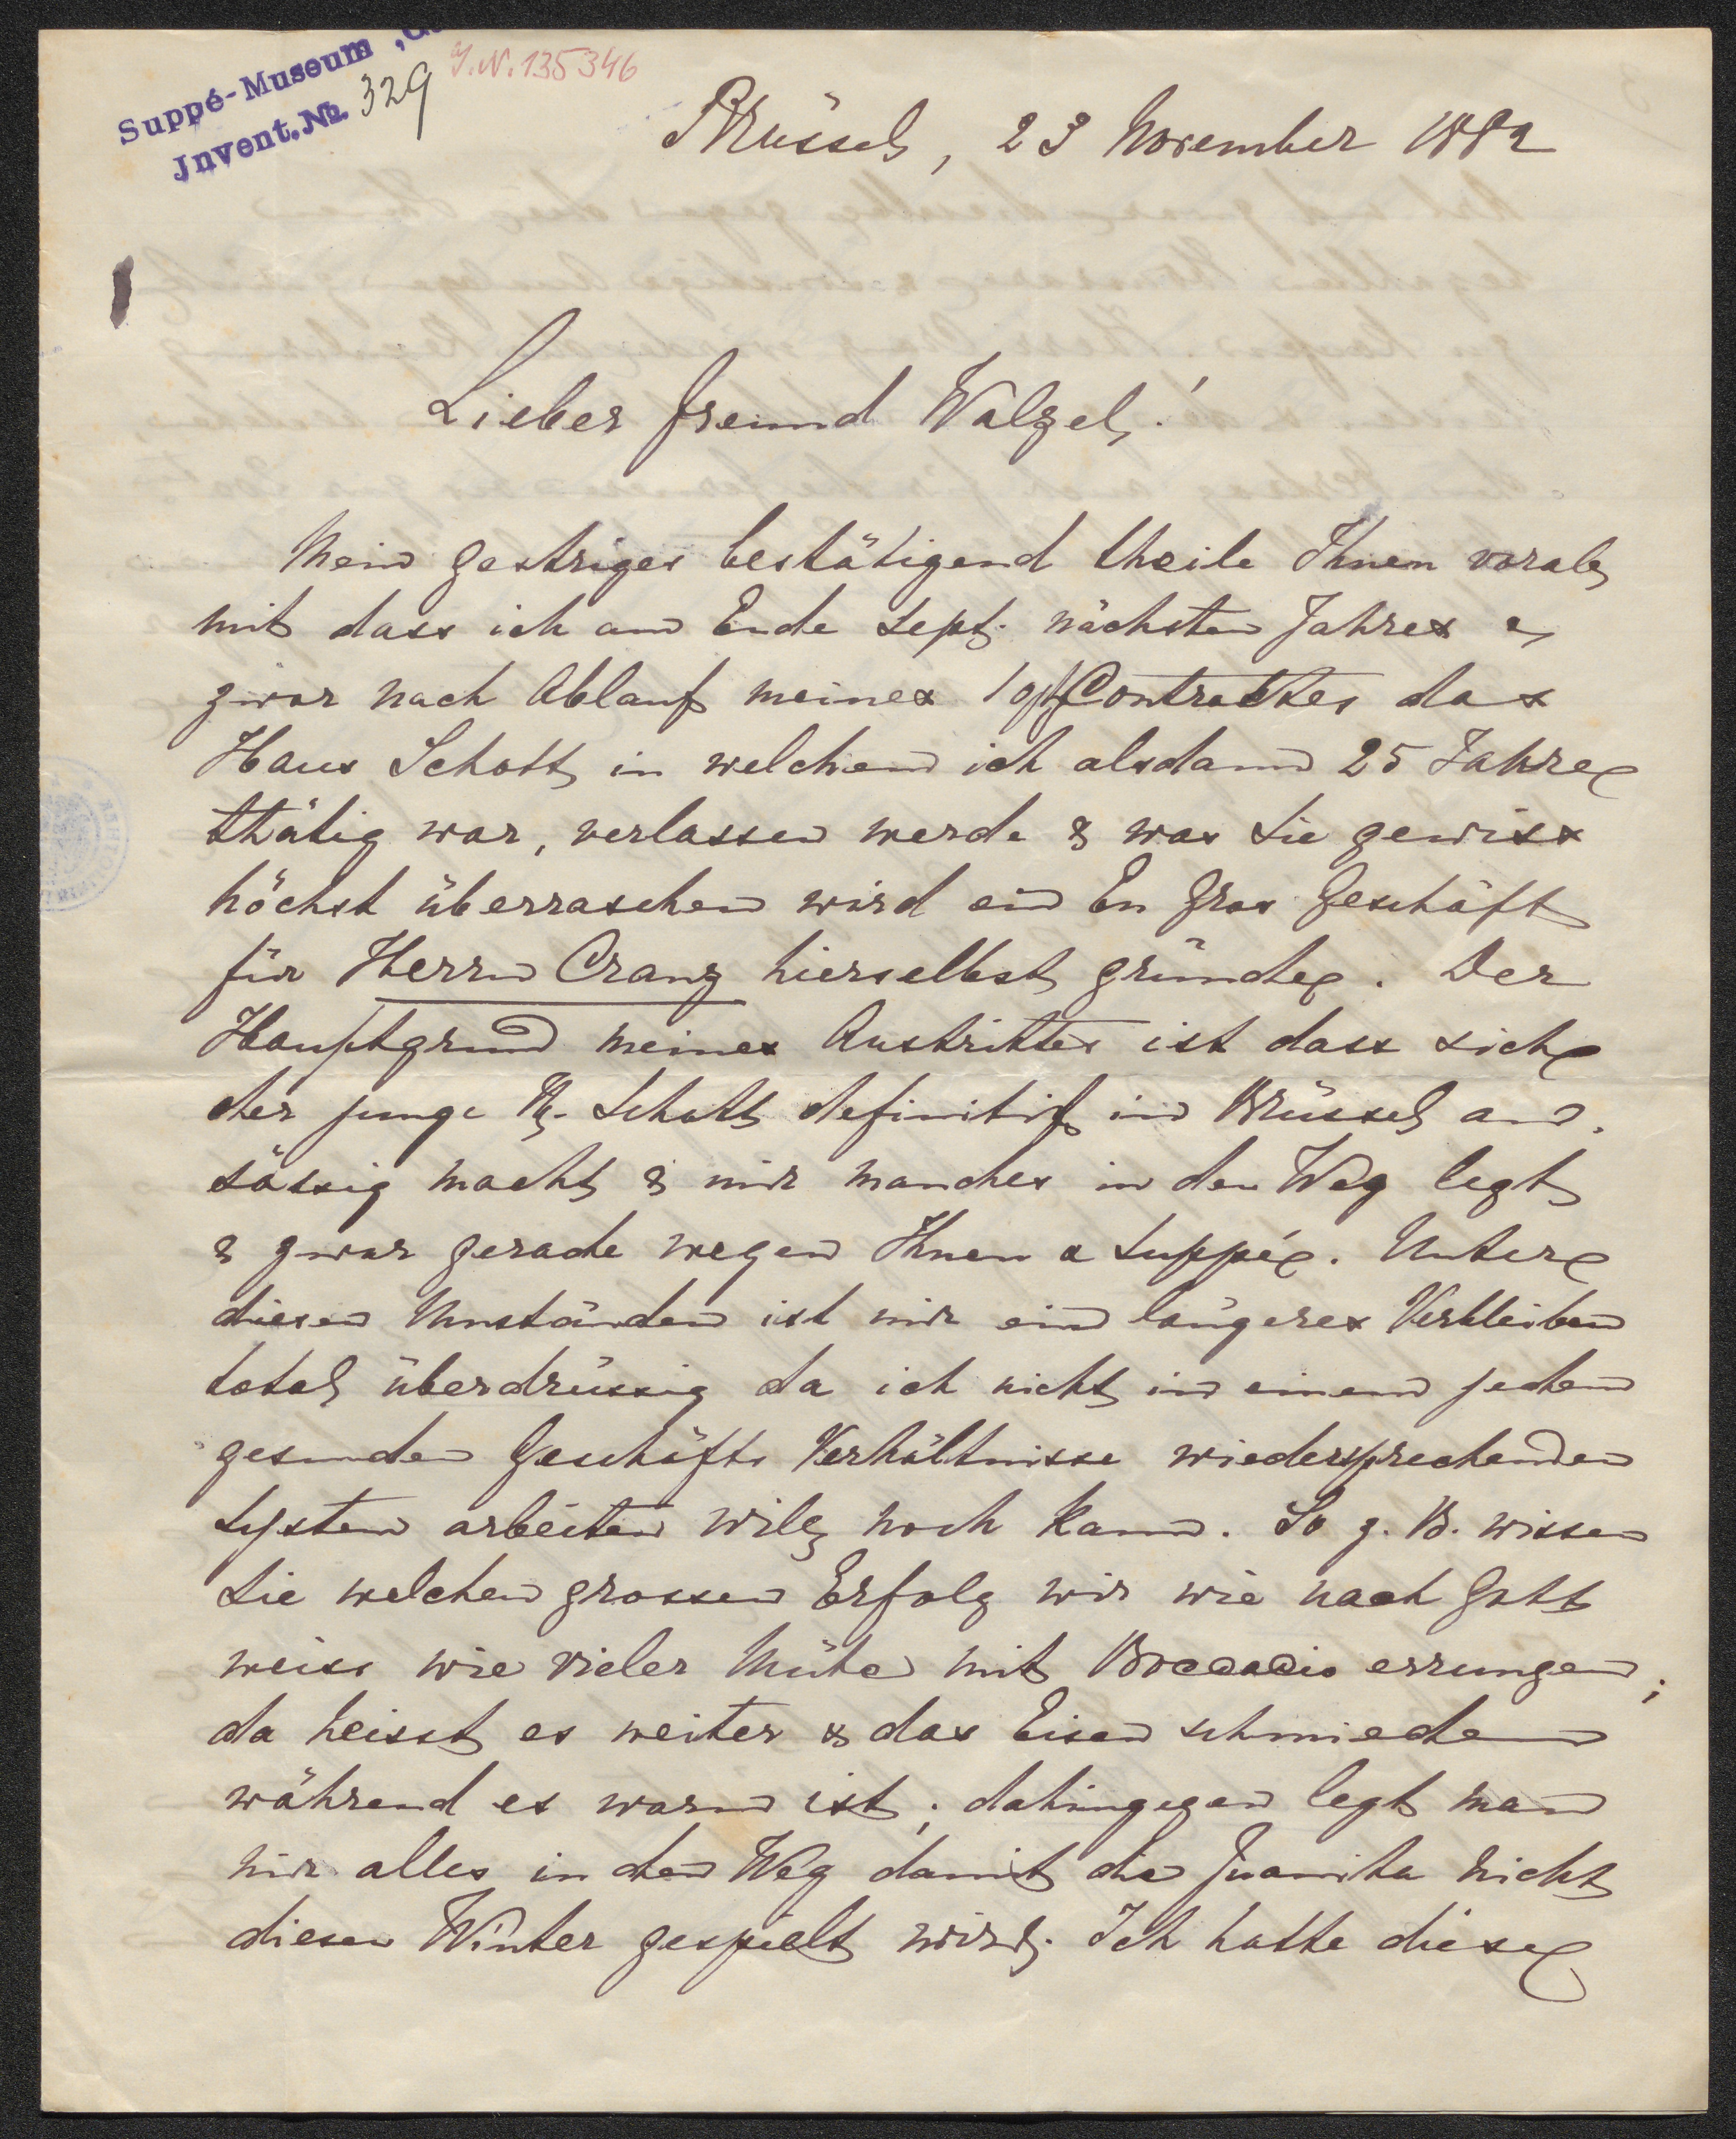 Suppé-Museum
J.N. 135346
Invent. No. 329
Brüssel, 23 November 1882
Lieber Freund Walzel!
Mein Gestriges bestätigend theile Ihnen vorab
mit dass ich am Ende Sept. nächsten Jahres &
zwar nach Ablauf meines Contractes das
Haus Schott in welchem ich alsdann 25 Jahre
thätig war, verlassen werde & was Sie gewiss
höchst überraschen wird ein En Gros Geschäft
für Herrn Cranz hierselbst gründe. Der
Hauptgrund meines Austrittes ist dass sich
der junge H. Schott definitif in Brüssel an-
sässig macht & mir manches in den Weg legt
& zwar gerade wegen Ihnen & Suppé. Unter
diesen Umständen ist mir ein längeres Verbleiben
total überdrüssig da ich nicht in einem jeden
gesunden Geschäfts Verhältnisse wiedersprechenden
System arbeiten will noch kann. So z. B. wissen
Sie welchen grossen Erfolg wir wie nach Gott
weiss wie vieler Mühe mit Boccaccio errungen;
da heisst es weiter & das Eisen schmieden
während es warm ist; dahingegen legt man
mir alles in den Weg damit die Juanita nicht
diesen Winter gespielt wird. Ich hatte diese